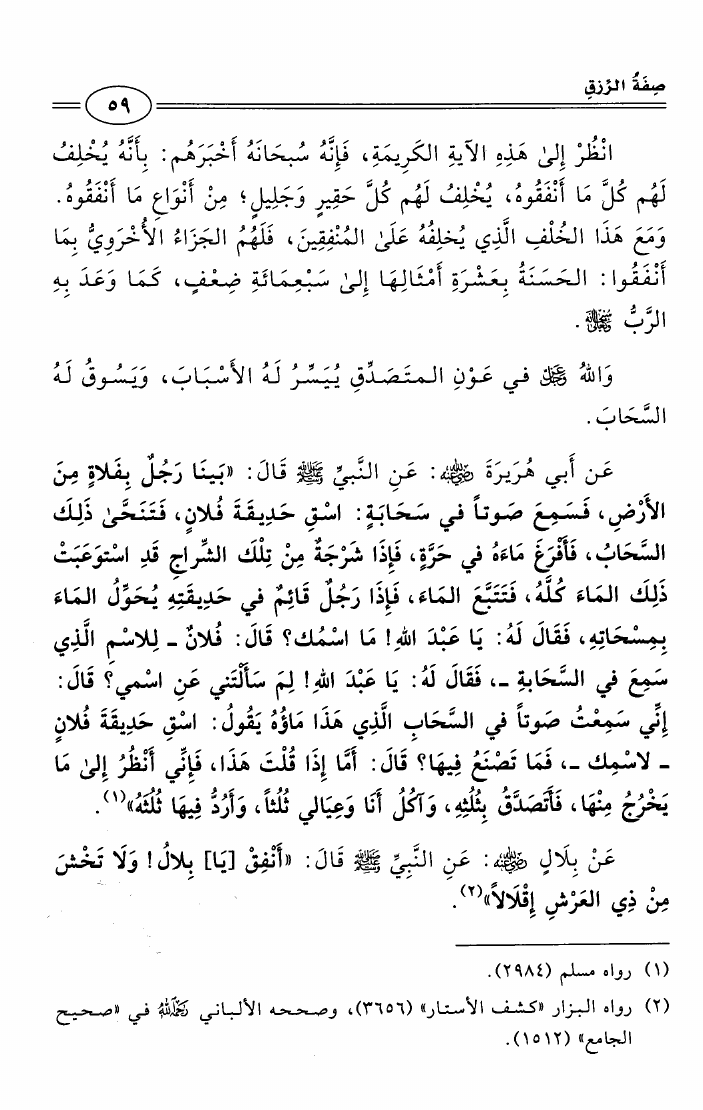 صِفَةُ الرِّزقِ
٥٩
انْظُرْ إِلىٰ هَذِهِ الآيةِ الكَرِيمَةِ، فَإنَّهُ سُبحَانَهُ أَخْبَرَهُم: بِأَنَّهُ يُخْلِفُ
لَهُم كُلَّ مَا أَنْفَقُوهُ، يُخْلِفُ لَهُم كُلَّ حَقِيرٍ وَجَلِيلٍ؛ مِنْ أَنْوَاعِ مَا أَنْفَقُوهُ.
وَمَعَ هَذَا الخُلْفِ الَّذِي يُخلِفُهُ عَلَىٰ المُنْفِقِينَ، فَلَهُمُ الجَزَاءُ الأُخْرَوِيُّ بِمَا
أَنْفَقُوا: الحَسَنَةُ بِعَشْرَةِ أَمْثَالِهَا إِلىٰ سَبْعِمَائَةِ ضِعْفٍ، كَمَا وَعَدَ بِهِ
الرَّبُّ ﷻ.
وَاللهُ عَزَّ وَجَلَّ في عَوْنِ المتَصَدِّقِ يُيَسِّرُ لَهُ الأَسْبَابَ، وَيَسُوقُ لَهُ
السَّحَابَ.
عَن أَبي هُرَيرَةَ رَضِيَ اللهُ عَنْهُ: عَنِ النَّبيِّ ﷺ قَالَ: «بَينَا رَجُلٌ بِفَلاةٍ مِنَ
الأَرْضِ، فَسَمِعَ صَوتاً في سَحَابَةٍ: اسْقِ حَدِيقَةَ فُلانٍ، فَتَنَحَّىٰ ذَلِكَ
السَّحَابُ، فَأَفْرَغَ مَاءَهُ في حَرَّةٍ، فَإِذَا شَرْجَةٌ مِنْ تِلْكَ الشِّرَاجِ قَدِ اسْتَوعَبَتْ
ذَلِكَ المَاءَ كُلَّهُ، فَتَتَبَّعَ المَاءَ، فَإِذَا رَجُلٌ قَائِمٌ في حَدِيقَتِهِ يُحَوِّلُ المَاءَ
بِمِسْحَاتِهِ، فَقَالَ لَهُ: يَا عَبْدَ اللهِ! مَا اسْمُك؟ قَالَ: فُلانٌ ـ لِلاسْمِ الَّذِي
سَمِعَ في السَّحَابةِ ـ، فَقَالَ لَهُ: يَا عَبْدَ اللهِ! لِمَ سَأَلْتَني عَنِ اسْمي؟ قَالَ:
إِنِّي سَمِعْتُ صَوتاً في السَّحَابِ الَّذِي هَذَا مَاؤُهُ يَقُولُ: اسْقِ حَدِيقَةَ فُلانٍ
ـ لاسْمِك ـ، فَمَا تَصْنَعُ فِيهَا؟ قَالَ: أَمَّا إِذَا قُلْتَ هَذَا، فَإِنِّي أَنْظُرُ إِلىٰ مَا
يَخْرُجُ مِنْهَا، فَأَتَصَدَّقُ بِثُلُثِهِ، وَآكُلُ أَنَا وَعِيَالي ثُلُثاً، وَأَرُدُّ فِيهَا ثُلُثَهُ»(١).
عَنْ بِلَالٍ رَضِيَ اللهُ عَنْهُ: عَنِ النَّبيِّ ﷺ قَالَ: «أَنْفِقْ [يَا] بِلالُ! وَلَا تَخْشَ
مِنْ ذِي العَرْشِ إِقْلَالاً»(٢).
(١) رواه مسلم (٢٩٨٤).
(٢) رواه البزار «كشف الأستار» (٣٦٥٦)، وصححه الألباني رَحِمَهُ اللهُ في «صحيح
الجامع» (١٥١٢).